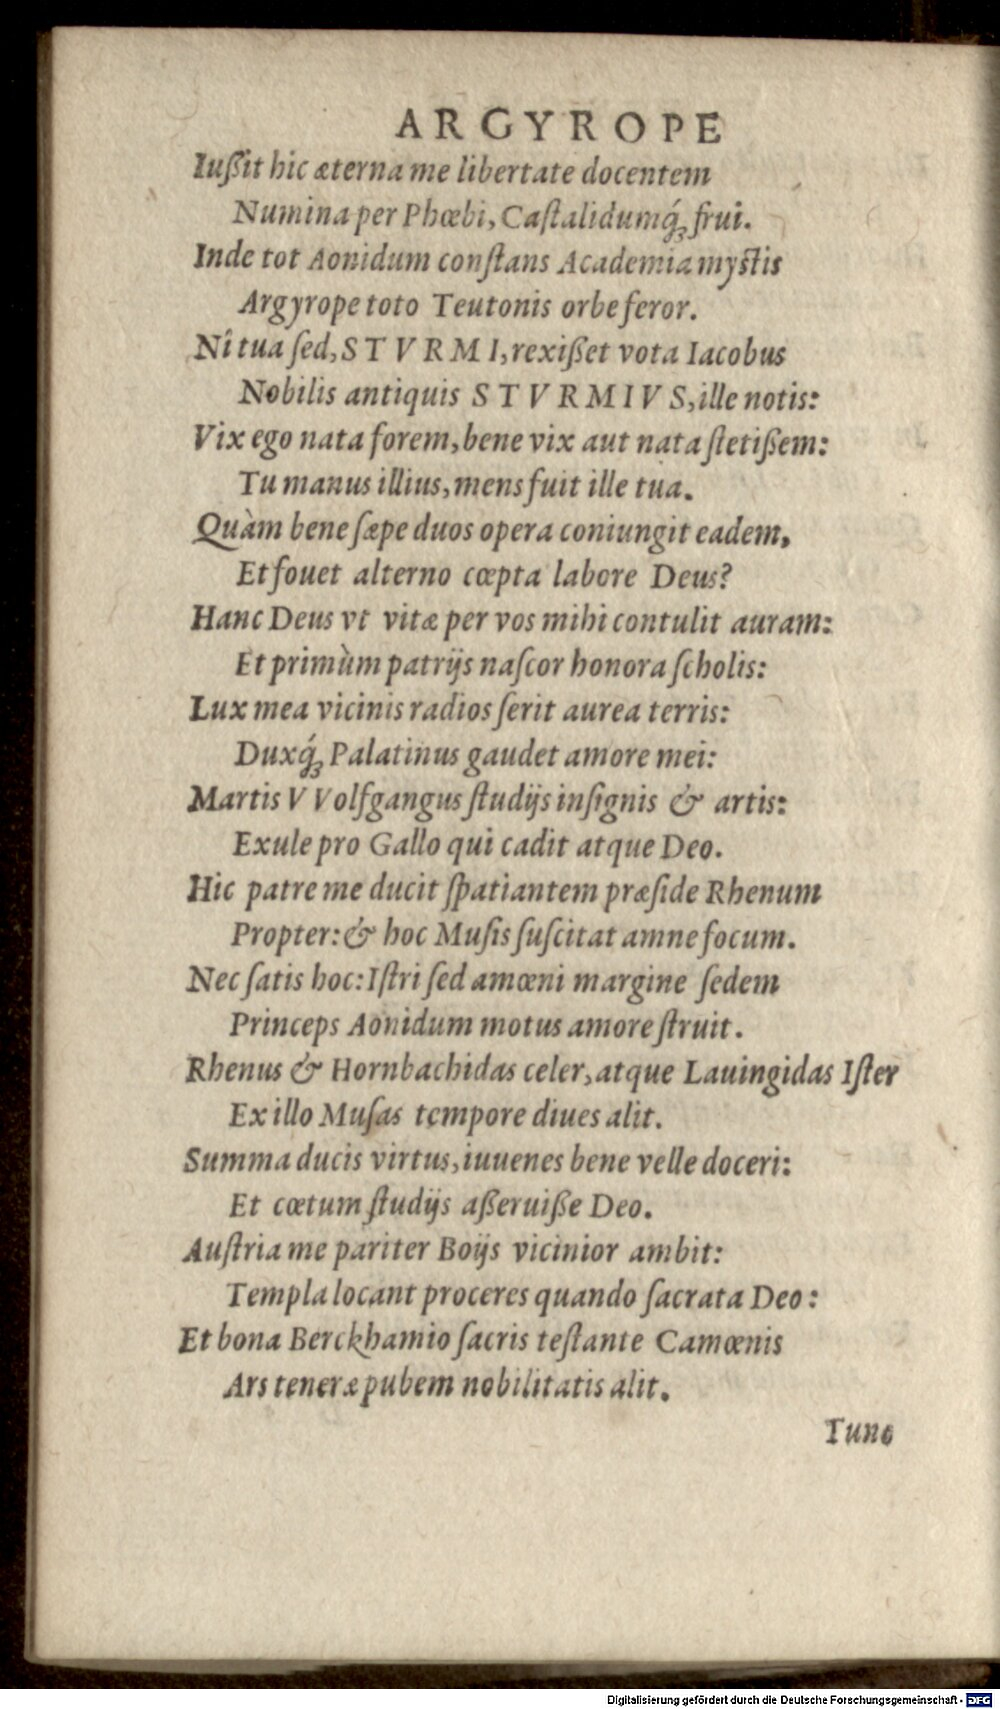 ARGYROPE
Iußit hic æterna me libertate docentem
Numina per Phœbi, Caſtalidumq́ꝫ frui.
Inde tot Aonidum conſtans Academia myſtis
Argyrope toto Teutonis orbe feror.
Nî tua ſed, STVRMI, rexißet vota Iacobus
Nobilis antiquis STVRMIVS, ille notis:
Vix ego nata forem, bene vix aut nata ſtetißem:
Tu manus illius, mens fuit ille tua.
Quàm bene ſæpe duos opera coniungit eadem,
Et fouet alterno cœpta labore Deus?
Hanc Deus vt vitæ per vos mihi contulit auram:
Et primùm patrijs naſcor honora ſcholis:
Lux mea vicinis radios ſerit aurea terris:
Duxq́ꝫ Palatinus gaudet amore mei:
Martis VVolfgangus ſtudijs inſignis & artis:
Exule pro Gallo qui cadit atque Deo.
Hic patre me ducit ſpatiantem præſide Rhenum
Propter: & hoc Muſis ſuſcitat amne focum.
Nec ſatis hoc: Iſtri ſed amœni margine ſedem
Princeps Aonidum motus amore ſtruit.
Rhenus & Hornbachidas celer, atque Lauingidas Iſter
Ex illo Muſas tempore diues alit.
Summa ducis virtus, iuuenes bene velle doceri:
Et cœtum ſtudijs aßeruiße Deo.
Auſtria me pariter Boijs vicinior ambit:
Templa locant proceres quando ſacrata Deo:
Et bona Berckhamio ſacris teſtante Camœnis
Ars teneræ pubem nobilitatis alit.
Tunc
Digitalisierung gefördert durch die Deutsche Forschungsgemeinschaft - DFG